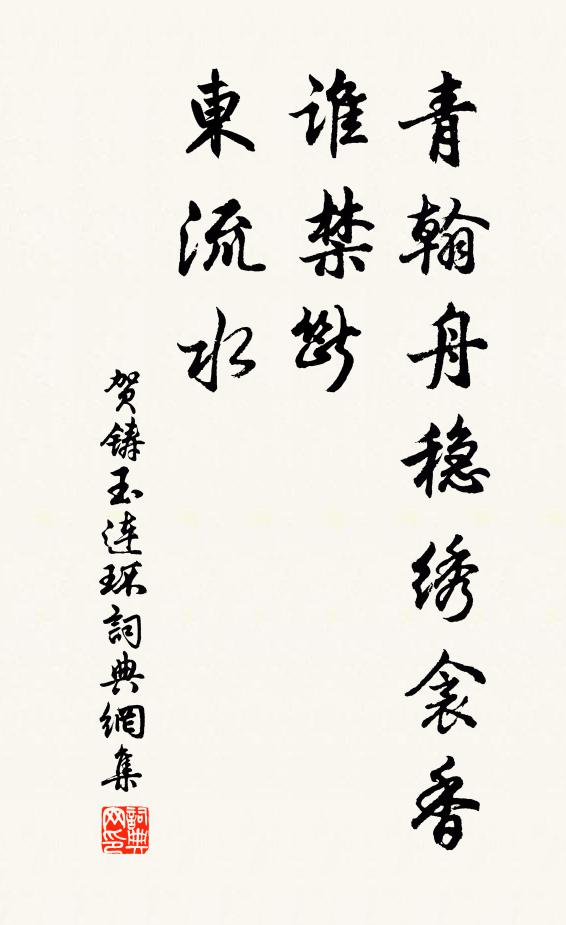 青翰舟穩綉衾香
誰禁斷
東流水
贺鑄玉連環詞典網集
詞典网印